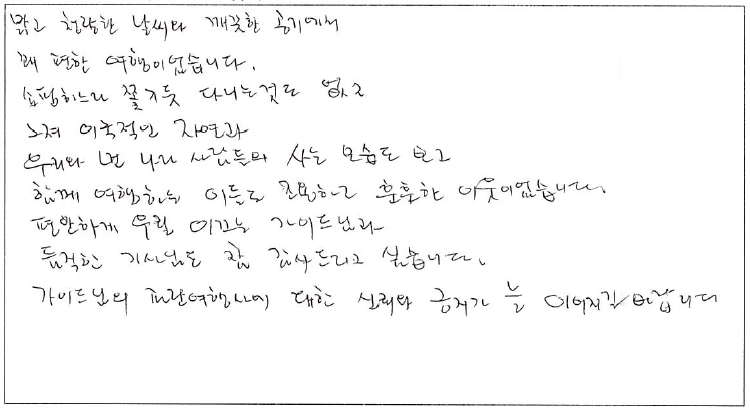 맑고 청량한 날씨와 깨끗한 공기에서
꽤 편한 여행이었습니다.
쇼핑하느라 쫓기듯 다니는것도 없고
그저 이국적인 자연과
우리와 먼 나라 사람들의 사는 모습도 보고
함께 여행하는 이들도 조용하고 훈훈한 이웃이었습니다.
편안하게 우릴 이끄는 가이드님과
듬직한 기사님도 참 감사드리고 싶습니다.
가이드님의 여행사에 대한 신뢰와 긍지가 늘 이어지길 바랍니다